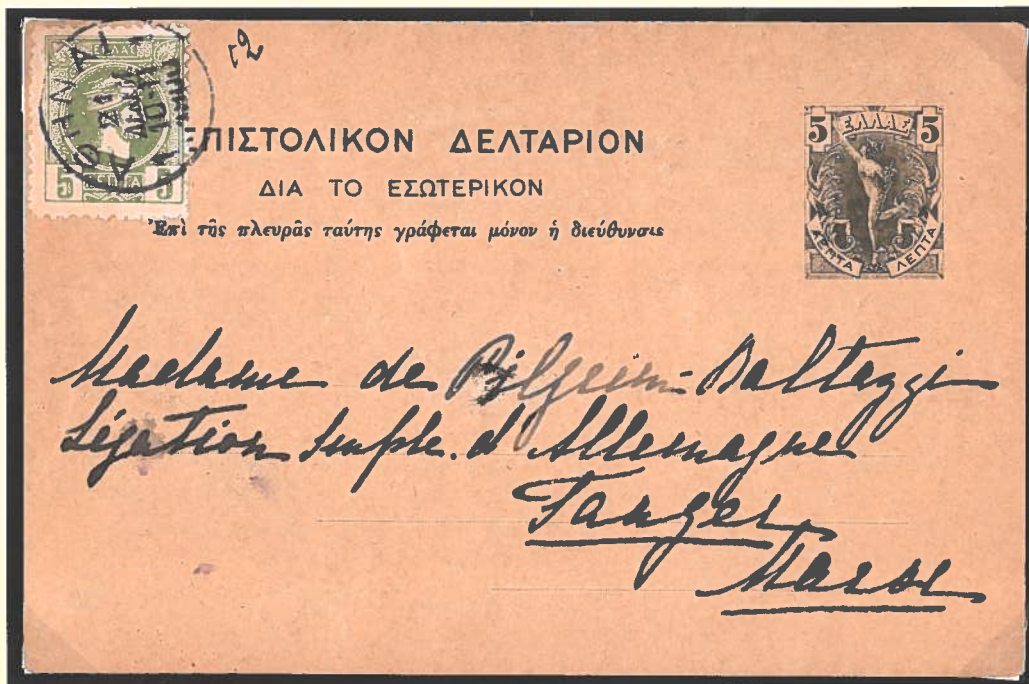 52
ΕΛΛΑΣ
5 ΛΕΠΤΑ 5
ΑΘΗΝΑΙ
ΕΠΙΣΤΟΛΙΚΟΝ ΔΕΛΤΑΡΙΟΝ
ΔΙΑ ΤΟ ΕΣΩΤΕΡΙΚΟΝ
Ἐπὶ τῆς πλευρᾶς ταύτης γράφεται μόνον ἡ διεύθυνσις
5 ΕΛΛΑΣ 5
5 5
ΛΕΠΤΑ ΛΕΠΤΑ
Madame de Pilgrim-Baltazzi
Légation Imple. d'Allemagne
Tanger
Maroc